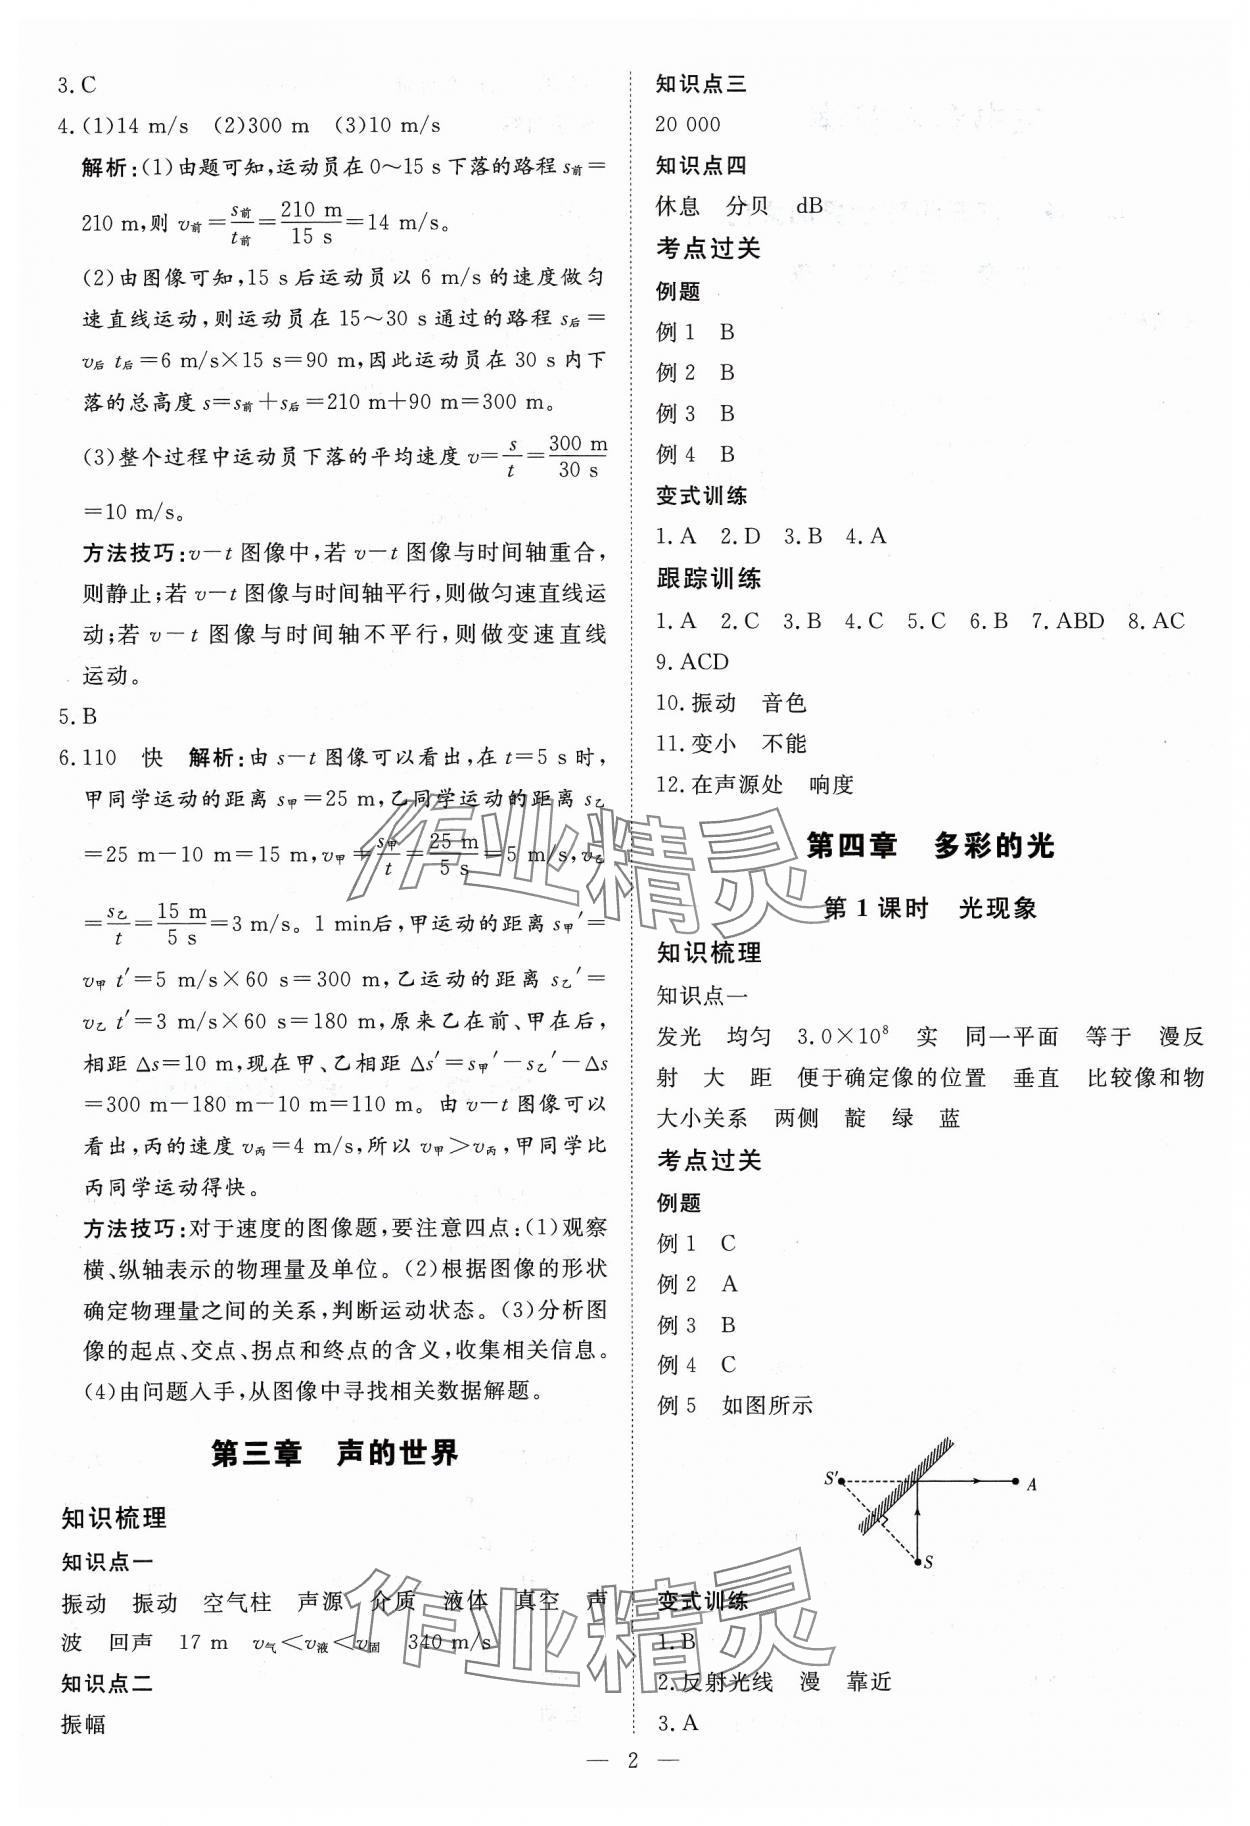 3. C
4. (1)14 m/s (2)300 m (3)10 m/s
解析:(1)由题可知,运动员在 0～15 s 下落的路程 s前=
210 m,则 v前=s前/t前=210 m/15 s=14 m/s。
(2)由图像可知,15 s 后运动员以 6 m/s 的速度做匀
速直线运动,则运动员在 15～30 s 通过的路程 s后=
v后 t后=6 m/s×15 s=90 m,因此运动员在 30 s 内下
落的总高度 s=s前+s后=210 m+90 m=300 m。
(3)整个过程中运动员下落的平均速度 v=s/t=300 m/30 s
=10 m/s。
方法技巧:v-t 图像中,若 v-t 图像与时间轴重合,
则静止;若 v-t 图像与时间轴平行,则做匀速直线运
动;若 v-t 图像与时间轴不平行,则做变速直线
运动。
5. B
6. 110 快 解析:由 s-t 图像可以看出,在 t=5 s 时,
甲同学运动的距离 s甲=25 m,乙同学运动的距离 s乙
=25 m-10 m=15 m,v甲=s甲/t=25 m/5 s=5 m/s,v乙
=s乙/t=15 m/5 s=3 m/s。1 min后,甲运动的距离 s甲′=
v甲 t′=5 m/s×60 s=300 m,乙运动的距离 s乙′=
v乙 t′=3 m/s×60 s=180 m,原来乙在前、甲在后,
相距 Δs=10 m,现在甲、乙相距 Δs′=s甲′-s乙′-Δs
=300 m-180 m-10 m=110 m。由 v-t 图像可以
看出,丙的速度 v丙=4 m/s,所以 v甲>v丙,甲同学比
丙同学运动得快。
方法技巧:对于速度的图像题,要注意四点:(1)观察
横、纵轴表示的物理量及单位。(2)根据图像的形状
确定物理量之间的关系,判断运动状态。(3)分析图
像的起点、交点、拐点和终点的含义,收集相关信息。
(4)由问题入手,从图像中寻找相关数据解题。
第三章 声的世界
知识梳理
知识点一
振动 振动 空气柱 声源 介质 液体 真空 声
波 回声 17 m v气<v液<v固 340 m/s
知识点二
振幅
知识点三
20 000
知识点四
休息 分贝 dB
考点过关
例题
例 1 B
例 2 B
例 3 B
例 4 B
变式训练
1. A 2. D 3. B 4. A
跟踪训练
1. A 2. C 3. B 4. C 5. C 6. B 7. ABD 8. AC
9. ACD
10. 振动 音色
11. 变小 不能
12. 在声源处 响度
第四章 多彩的光
第 1 课时 光现象
知识梳理
知识点一
发光 均匀 3.0×10⁸ 实 同一平面 等于 漫反
射 大 距 便于确定像的位置 垂直 比较像和物
大小关系 两侧 靛 绿 蓝
考点过关
例题
例 1 C
例 2 A
例 3 B
例 4 C
例 5 如图所示
S′ A
S
变式训练
1. B
2. 反射光线 漫 靠近
3. A
— 2 —
作业精灵
作业精灵